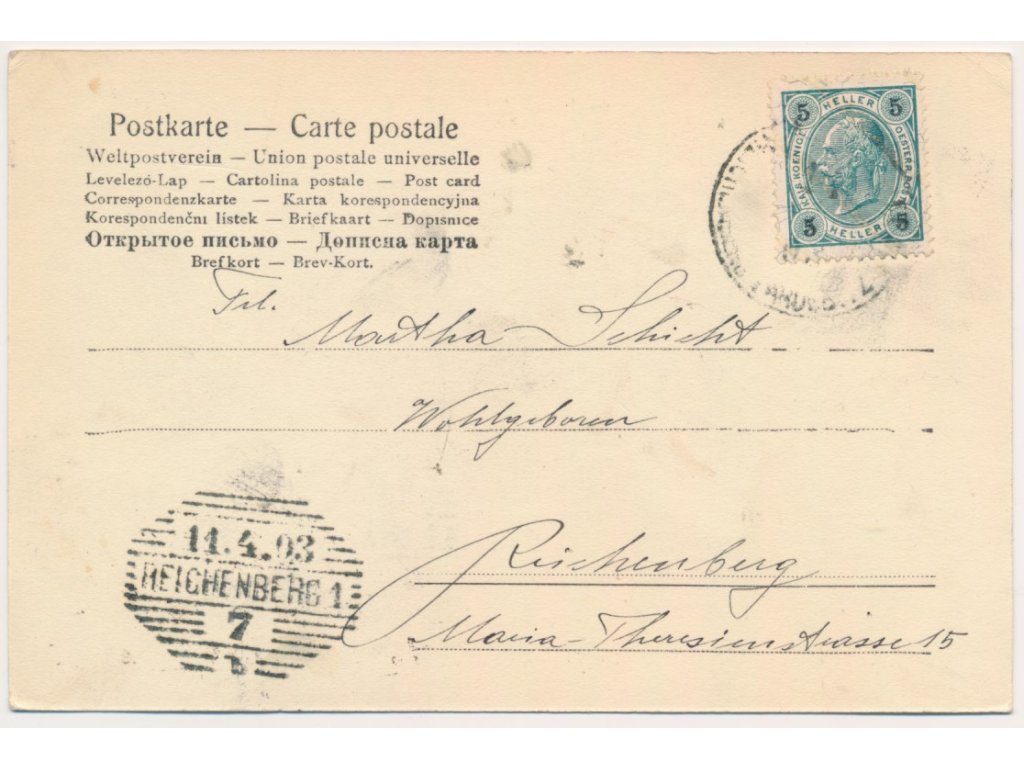 Postkarte — Carte postale
Weltpostverein — Union postale universelle
Levelező-Lap — Cartolina postale — Post card
Correspondenzkarte — Karta korespondencyjna
Korespondenční lístek — Briefkaart — Dopisnice
Открытое письмо — Дописна карта
Brefkort — Brev-Kort.
5 HELLER 5
KAIS. KOENIGL. OESTERR. POST
5 HELLER 5
Frl.
Martha Schicht
Wohlgeboren
Reichenberg
Maria-Theresienstrasse 15
11.4.03
REICHENBERG 1
7